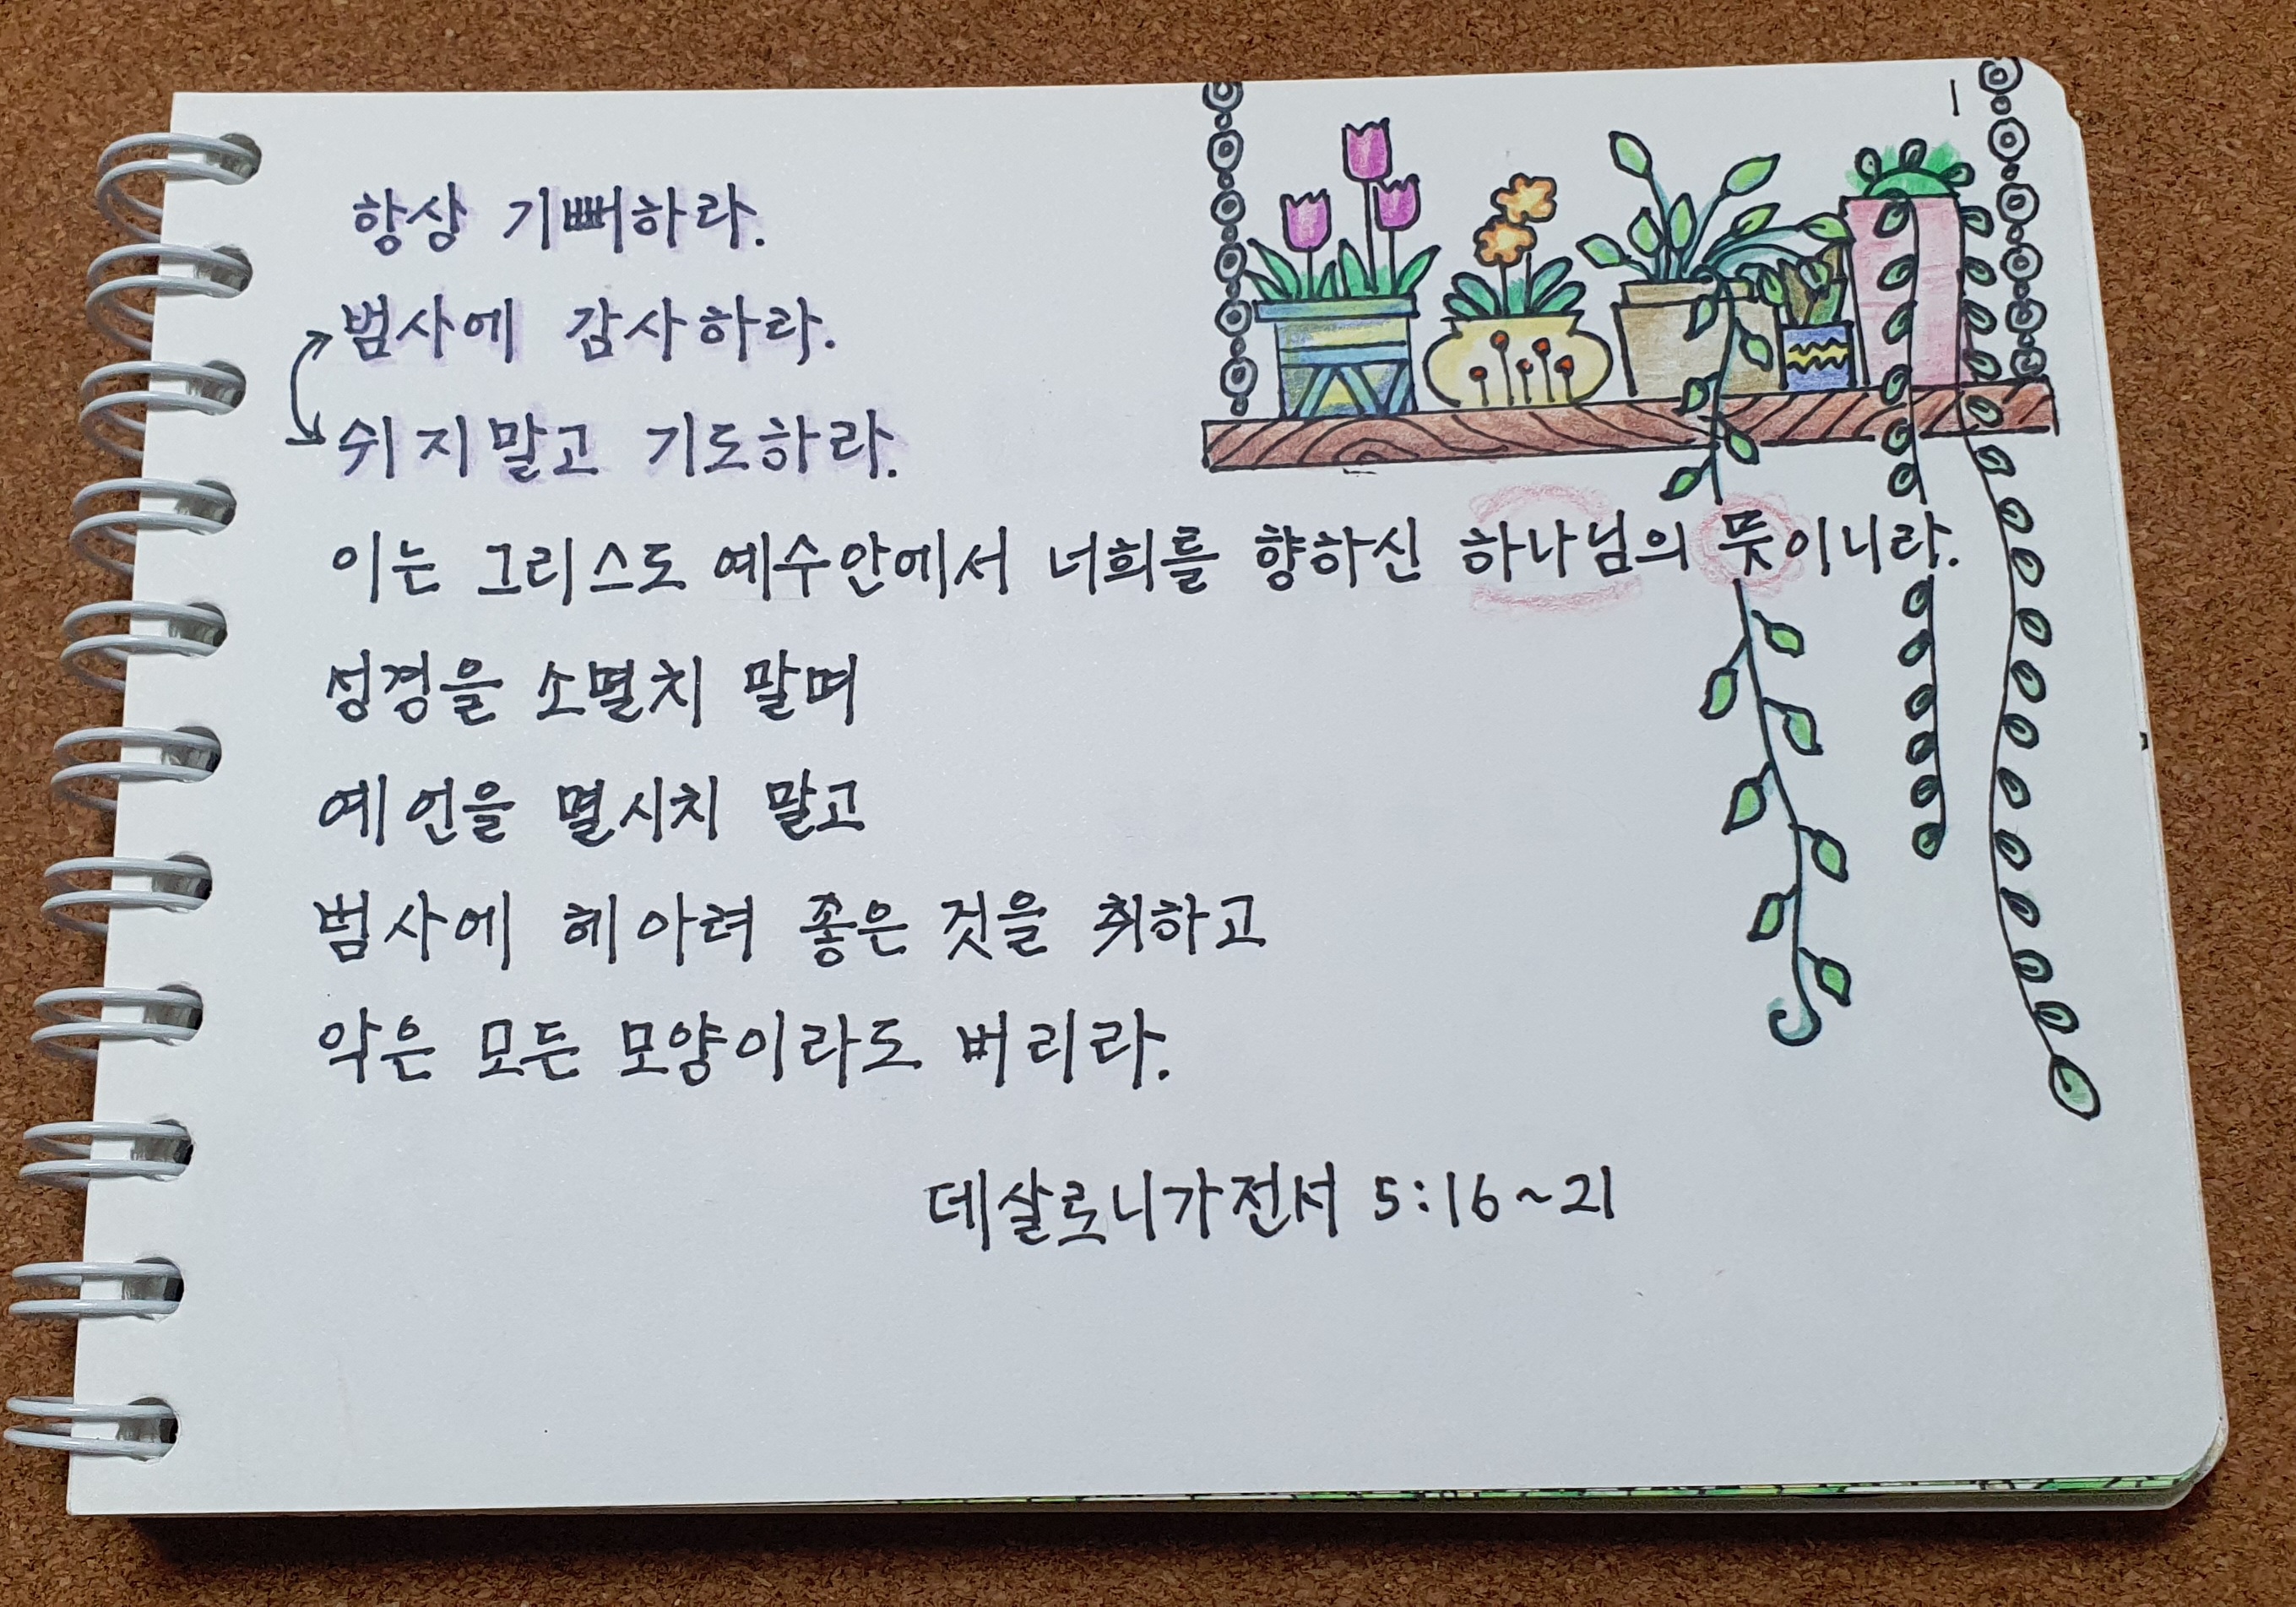 항상 기뻐하라.
범사에 감사하라.
쉬지말고 기도하라.
이는 그리스도 예수안에서 너희를 향하신 하나님의 뜻이니라.
성경을 소멸치 말며
예언을 멸시치 말고
범사에 헤아려 좋은 것을 취하고
악은 모든 모양이라도 버리라.
데살로니가전서 5:16~21